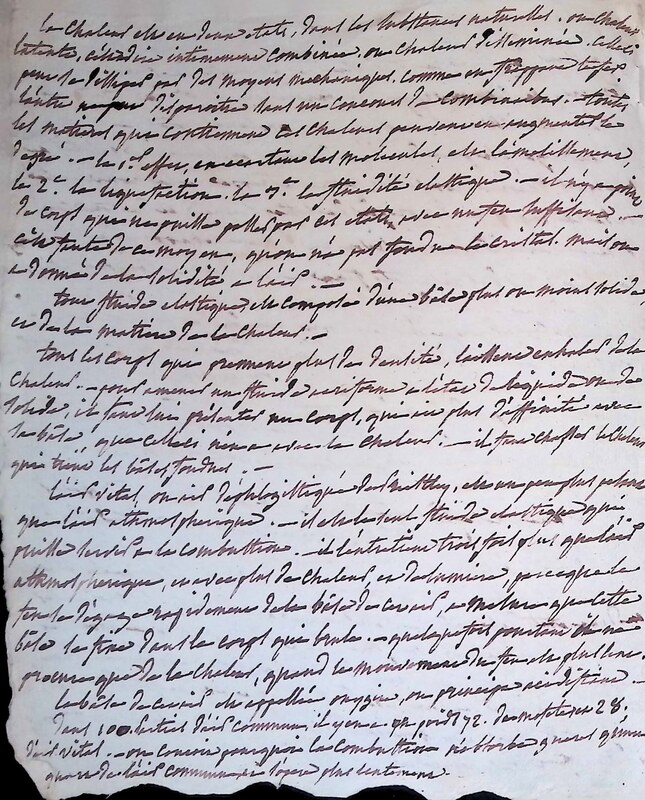 la chaleur est en deux etats, dans les substances naturelles. ou chaleur
latente, c'est a dire intimement combinée, ou chaleur disséminée. celleci
peut se dissiper par des moyens mechaniques. comme en frappant le fer
l'autre disparoitre dans un concours de combinaisons. - toutes
les matieres que contiennent ces chaleurs peuvent en augmenter le
degré. - le 1er effet, en ecartant les molécules, est l'amolissement,
le 2e. la liquefaction. le 3e. la fluidité elastique. - il n'y a point
de corps qui ne puisse passer par ces etats, avec un feu suffisant. -
c'est faute de ce moyen, qu'on n'a pas fondu le cristal. mais on
a donné de la solidité, a l'air. -
tout fluide elastique est composé d'une base plus ou moins solide,
et de la matiere de la chaleur. -
tous les corps qui prennent plus de densité, laissent exhaler de la
chaleur. - pour amener un fluide aeriforme a l'état de liquide ou de
solide, il faut lui présenter un corps, qui ait plus d'affinité avec
sa base, que celleci n'en a avec la chaleur. - il faut chasser la chaleur
qui tient les bases fondues. -
l'air vital, ou air déphlogistiqué de Priestley, est un peu plus pesant
que l'air athmospherique. - il est le seul fluide elastique qui
puisse servir a la combustion. - il l'entretient trois fois plus que l'air
athmospherique, et avec plus de chaleur, et de lumiere, parceque le
feu se dégage rapidement de la base de cet air, a mesure que cette
base se fixe dans le corps qui brule. - quelque fois pourtant il ne
procure que de la chaleur, quand le mouvement du feu est plus lent.
la base de cet air est appellée oxygine, ou principe acidifiant. -
dans 100. parties d'air commun, il y en a 72. de mofete et 28.
d'air vital. - on conçoit pourquoi la combustion n'absorbe gueres qu'un
quart de l'air commun, et s'opere plus lentement.